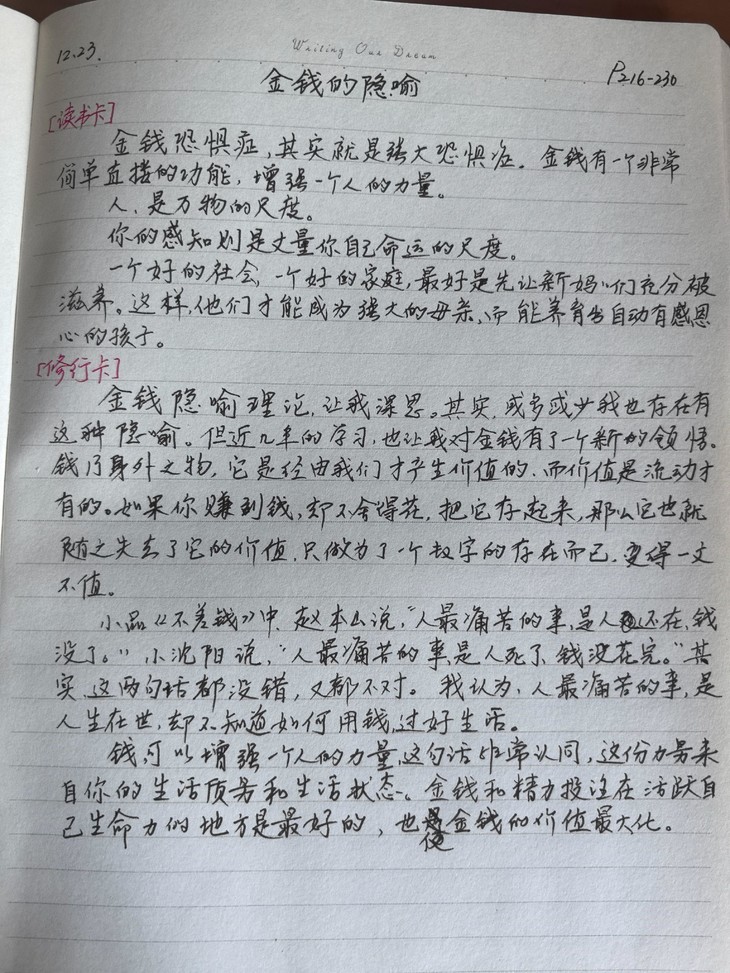 Writing Our Dream
12.23.
P216-230
金钱的隐喻
[读书卡]
金钱恐惧症,其实就是强大恐惧症。金钱有一个非常
简单直接的功能,增强一个人的力量。
人,是万物的尺度。
你的感知则是丈量你自己命运的尺度。
一个好的社会,一个好的家庭,最好是先让新妈妈们充分被
滋养。这样,他们才能成为强大的母亲,而能养育出自动有感恩
心的孩子。
[修行卡]
金钱隐喻理论,让我深思。其实,或多或少我也存在有
这种隐喻。但近几年的学习,也让我对金钱有了一个新的领悟。
钱乃身外之物,它是经由我们才产生价值的,而价值是流动才
有的。如果你赚到钱,却不舍得花,把它存起来,那么它也就
随之失去了它的价值,只做为了一个数字的存在而已,变得一文
不值。
小品《不差钱》中,赵本山说,“人最痛苦的事,是人还在,钱
没了。”小沈阳说,“人最痛苦的事,是人死了,钱没花完。”其
实,这两句话都没错,又都不对。我认为,人最痛苦的事,是
人生在世,却不知道如何用钱,过好生活。
钱,可以增强一个人的力量,这句话非常认同,这份力量来
自你的生活质量和生活状态。金钱和精力投注在活跃自
己生命力的地方是最好的,也使金钱的价值最大化。